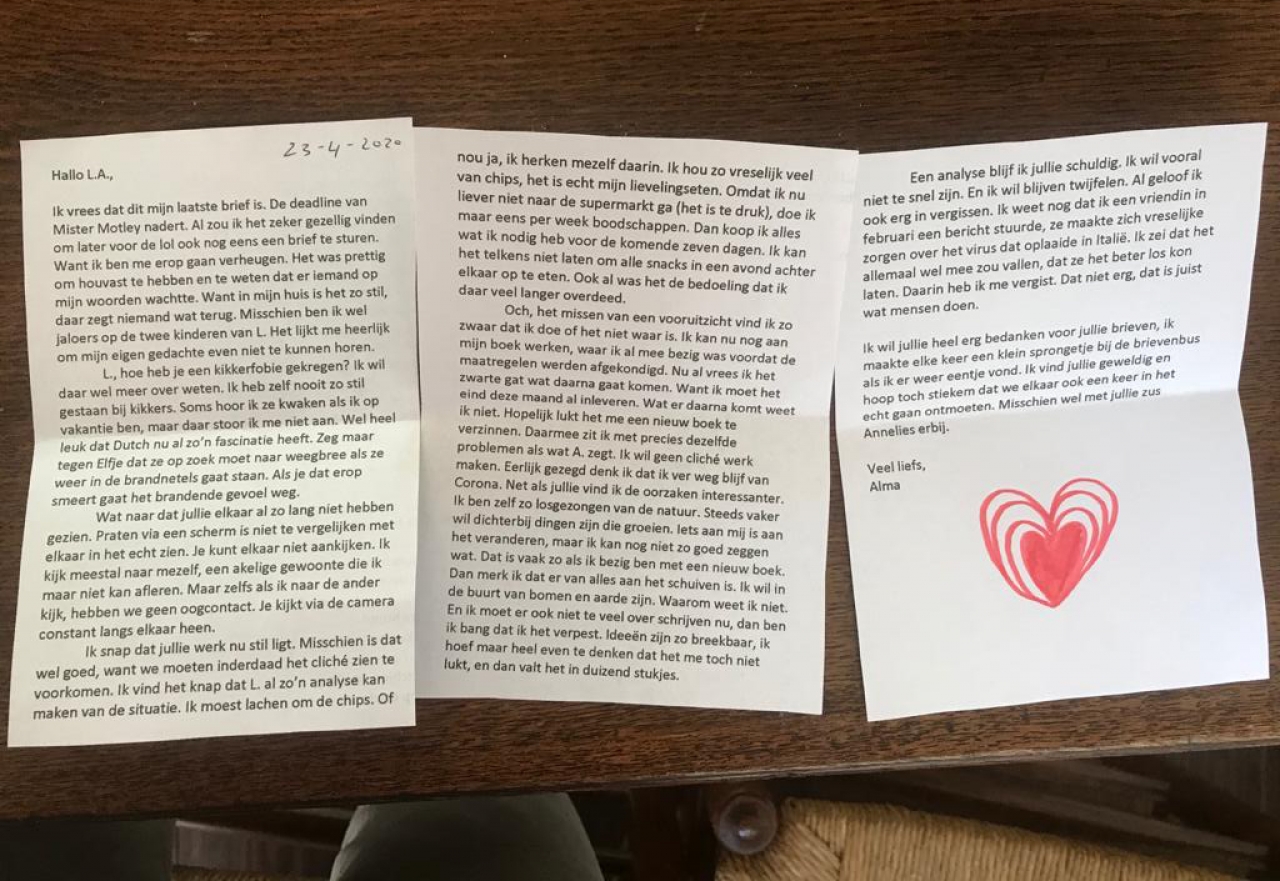 23-4-2020
Hallo L.A.,
Ik vrees dat dit mijn laatste brief is. De deadline van
Mister Motley nadert. Al zou ik het zeker gezellig vinden
om later voor de lol ook nog eens een brief te sturen.
Want ik ben me erop gaan verheugen. Het was prettig
om houvast te hebben en te weten dat er iemand op
mijn woorden wachtte. Want in mijn huis is het zo stil,
daar zegt niemand wat terug. Misschien ben ik wel
jaloers op de twee kinderen van L. Het lijkt me heerlijk
om mijn eigen gedachte even niet te kunnen horen.
L., hoe heb je een kikkerfobie gekregen? Ik wil
daar wel meer over weten. Ik heb zelf nooit zo stil
gestaan bij kikkers. Soms hoor ik ze kwaken als ik op
vakantie ben, maar daar stoor ik me niet aan. Wel heel
leuk dat Dutch nu al zo'n fascinatie heeft. Zeg maar
tegen Elfje dat ze op zoek moet naar weegbree als ze
weer in de brandnetels gaat staan. Als je dat erop
smeert gaat het brandende gevoel weg.
Wat naar dat jullie elkaar al zo lang niet hebben
gezien. Praten via een scherm is niet te vergelijken met
elkaar in het echt zien. Je kunt elkaar niet aankijken. Ik
kijk meestal naar mezelf, een akelige gewoonte die ik
maar niet kan afleren. Maar zelfs als ik naar de ander
kijk, hebben we geen oogcontact. Je kijkt via de camera
constant langs elkaar heen.
Ik snap dat jullie werk nu stil ligt. Misschien is dat
wel goed, want we moeten inderdaad het cliché zien te
voorkomen. Ik vind het knap dat L. al zo'n analyse kan
maken van de situatie. Ik moest lachen om de chips. Of
nou ja, ik herken mezelf daarin. Ik hou zo vreselijk veel
van chips, het is echt mijn lievelingseten. Omdat ik nu
liever niet naar de supermarkt ga (het is te druk), doe ik
maar eens per week boodschappen. Dan koop ik alles
wat ik nodig heb voor de komende zeven dagen. Ik kan
het telkens niet laten om alle snacks in een avond achter
elkaar op te eten. Ook al was het de bedoeling dat ik
daar veel langer overdeed.
Och, het missen van een vooruitzicht vind ik zo
zwaar dat ik doe of het niet waar is. Ik kan nu nog aan
mijn boek werken, waar ik al mee bezig was voordat de
maatregelen werden afgekondigd. Nu al vrees ik het
zwarte gat wat daarna gaat komen. Want ik moet het
eind deze maand al inleveren. Wat er daarna komt weet
ik niet. Hopelijk lukt het me een nieuw boek te
verzinnen. Daarmee zit ik met precies dezelfde
problemen als wat A. zegt. Ik wil geen cliché werk
maken. Eerlijk gezegd denk ik dat ik ver weg blijf van
Corona. Net als jullie vind ik de oorzaken interessanter.
Ik ben zelf zo losgezongen van de natuur. Steeds vaker
wil dichterbij dingen zijn die groeien. Iets aan mij is aan
het veranderen, maar ik kan nog niet zo goed zeggen
wat. Dat is vaak zo als ik bezig ben met een nieuw boek.
Dan merk ik dat er van alles aan het schuiven is. Ik wil in
de buurt van bomen en aarde zijn. Waarom weet ik niet.
En ik moet er ook niet te veel over schrijven nu, dan ben
ik bang dat ik het verpest. Ideeën zijn zo breekbaar, ik
hoef maar heel even te denken dat het me toch niet
lukt, en dan valt het in duizend stukjes.
Een analyse blijf ik jullie schuldig. Ik wil vooral
niet te snel zijn. En ik wil blijven twijfelen. Al geloof ik
ook erg in vergissen. Ik weet nog dat ik een vriendin in
februari een bericht stuurde, ze maakte zich vreselijke
zorgen over het virus dat oplaaide in Italië. Ik zei dat het
allemaal wel mee zou vallen, dat ze het beter los kon
laten. Daarin heb ik me vergist. Dat niet erg, dat is juist
wat mensen doen.
Ik wil jullie heel erg bedanken voor jullie brieven, ik
maakte elke keer een klein sprongetje bij de brievenbus
als ik er weer eentje vond. Ik vind jullie geweldig en
hoop toch stiekem dat we elkaar ook een keer in het
echt gaan ontmoeten. Misschien wel met jullie zus
Annelies erbij.
Veel liefs,
Alma